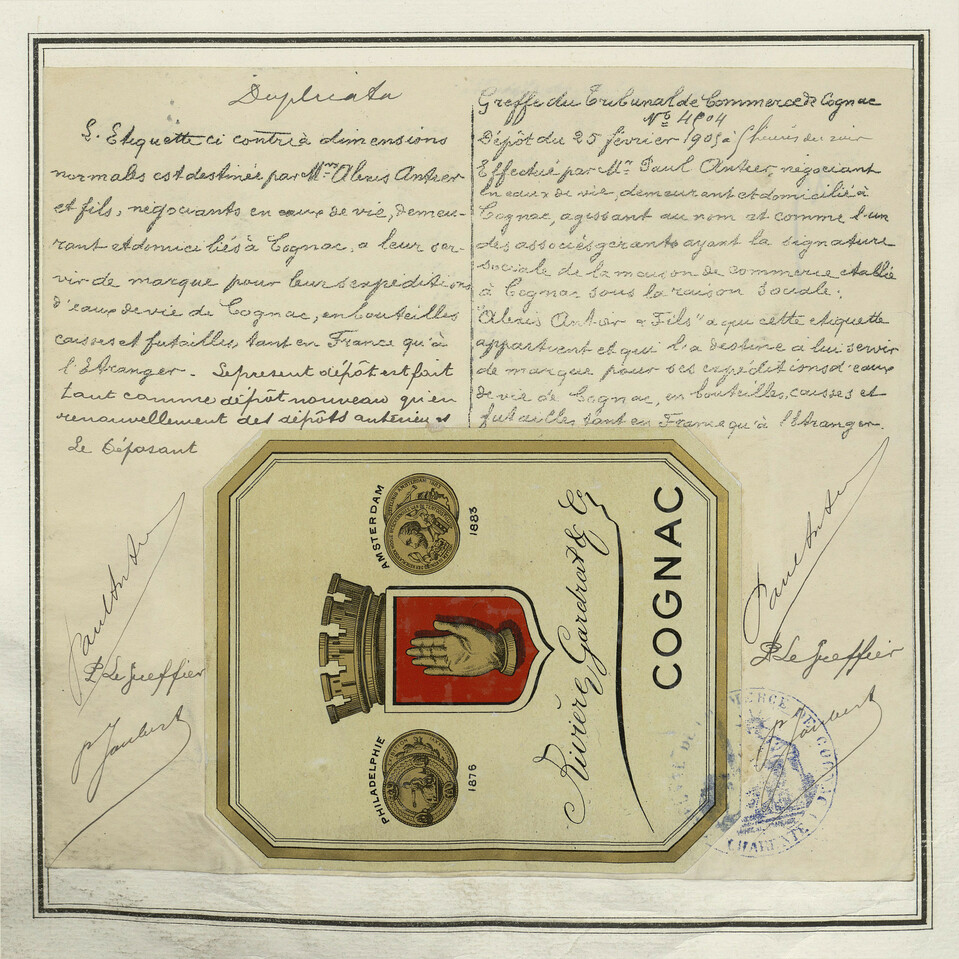 Duplicata
L'Etiquette ci contre à dimensions
normales est destinée par Mrs Alexis Antier
et fils, négociants en eaux de vie, demeu-
rant et domiciliés à Cognac, a leur ser-
vir de marque pour leurs expéditions
d'eaux de vie de Cognac, en bouteilles
caisses et futailles, tant en France qu'à
l'Etranger. Le present dépôt est fait
tant comme dépôt nouveau qu'en
renouvellement des dépôts antérieurs
Le Déposant
Paul Antier
P. Le Greffier
P Joubert
Greffe du Tribunal de Commerce de Cognac
No 4804
Dépôt du 25 février 1905 à heures du soir
Effectué par Mr Paul Antier, négociant
en eaux de vie, demeurant et domicilié à
Cognac, agissant au nom et comme l'un
des associés gerants ayant la signature
sociale de la maison de commerce etablie
à Cognac sous la raison sociale:
"Alexis Antier & Fils" a qui cette etiquette
appartient et qui l'a destinée à lui servir
de marque pour ses expéditions d'eaux
de vie de Cognac, en bouteilles, caisses et
futailles tant en France qu'à l'Etranger.
Paul Antier
P. Le Greffier
P Joubert
AMSTERDAM
1883
PHILADELPHIE
1876
Rivière Gardrat & Co
COGNAC
COMMERCE DE COGNAC
CHARENTE